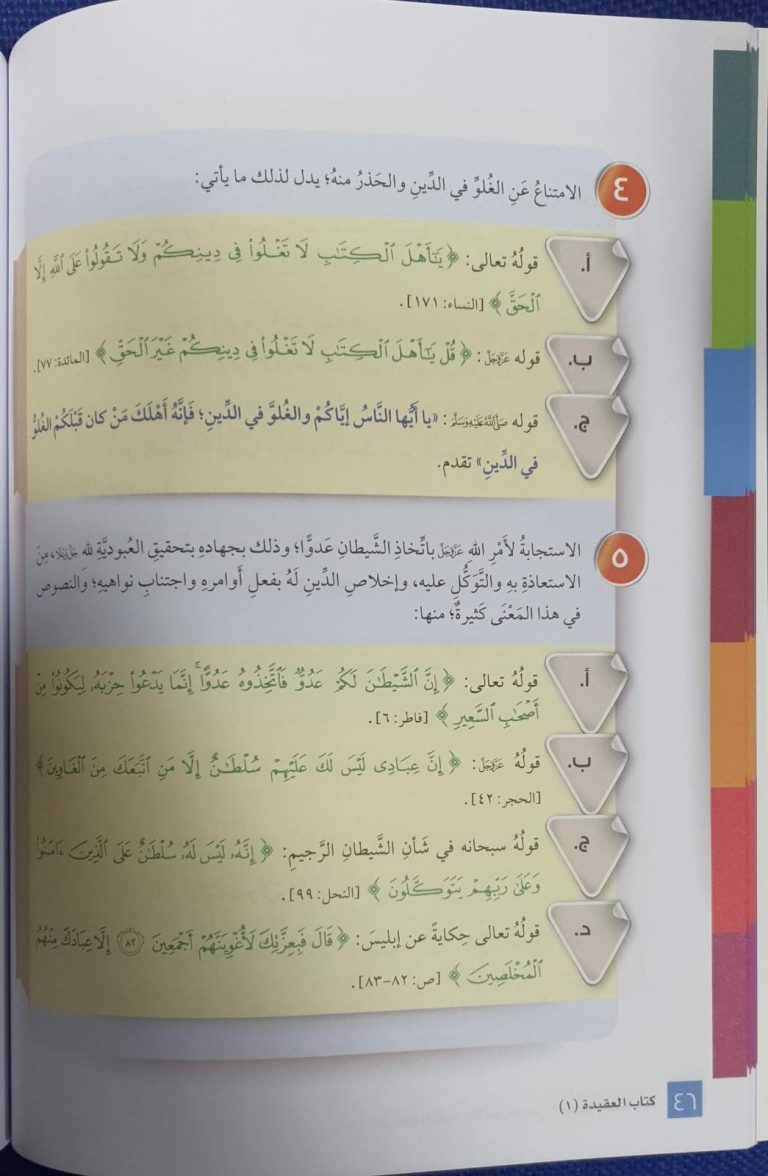 ٤ الامتناعُ عَنِ الغُلوِّ في الدِّينِ والحَذرُ منهُ؛ يدل لذلك ما يأتي:
أ. قولُهُ تعالى: ﴿ يَٰٓأَهۡلَ ٱلۡكِتَٰبِ لَا تَغۡلُواْ فِي دِينِكُمۡ وَلَا تَقُولُواْ عَلَى ٱللَّهِ إِلَّا
ٱلۡحَقَّ ﴾ [النساء: ١٧١].
ب. قوله عَزَّوَجَلَّ: ﴿ قُلۡ يَٰٓأَهۡلَ ٱلۡكِتَٰبِ لَا تَغۡلُواْ فِي دِينِكُمۡ غَيۡرَ ٱلۡحَقِّ ﴾ [المائدة: ٧٧].
ج. قوله صَلَّى اللَّهُ عَلَيْهِ وَسَلَّمَ: «يا أَيُّها النَّاسُ إِيَّاكُمْ والغُلوَّ في الدِّينِ؛ فَإِنَّهُ أَهْلَكَ مَنْ كان قَبْلَكُمْ الغُلوُّ
في الدِّينِ» تقدم.
٥ الاستجابةُ لأَمْرِ الله عَزَّوَجَلَّ باتِّخاذِ الشَّيطانِ عَدوًّا؛ وذلك بجهادهِ بتحقيقِ العُبوديَّةِ لله جَلَّ وَعَلَا، مِنَ
الاستعاذةِ بهِ والتَّوَكُّلِ عليه، وإخلاصِ الدِّينِ لَهُ بفعلِ أَوامرهِ واجتنابِ نواهيهِ؛ والنصوص
في هذا المَعْنَى كَثيرةٌ؛ منها:
أ. قولُهُ تعالى: ﴿ إِنَّ ٱلشَّيۡطَٰنَ لَكُمۡ عَدُوّٞ فَٱتَّخِذُوهُ عَدُوًّاۚ إِنَّمَا يَدۡعُواْ حِزۡبَهُۥ لِيَكُونُواْ مِنۡ
أَصۡحَٰبِ ٱلسَّعِيرِ ﴾ [فاطر: ٦].
ب. قولُهُ عَزَّوَجَلَّ: ﴿ إِنَّ عِبَادِي لَيۡسَ لَكَ عَلَيۡهِمۡ سُلۡطَٰنٌ إِلَّا مَنِ ٱتَّبَعَكَ مِنَ ٱلۡغَاوِينَ ﴾
[الحجر: ٤٢].
ج. قولُهُ سبحانه في شَأنِ الشَّيطانِ الرَّجيمِ: ﴿ إِنَّهُۥ لَيۡسَ لَهُۥ سُلۡطَٰنٌ عَلَى ٱلَّذِينَ ءَامَنُواْ
وَعَلَىٰ رَبِّهِمۡ يَتَوَكَّلُونَ ﴾ [النحل: ٩٩].
د. قولُهُ تعالى حِكايةً عن إبليسَ: ﴿ قَالَ فَبِعِزَّتِكَ لَأُغۡوِيَنَّهُمۡ أَجۡمَعِينَ ٨٢ إِلَّا عِبَادَكَ مِنۡهُمُ
ٱلۡمُخۡلَصِينَ ﴾ [ص: ٨٢-٨٣].
٤٦ كتاب العقيدة (١)